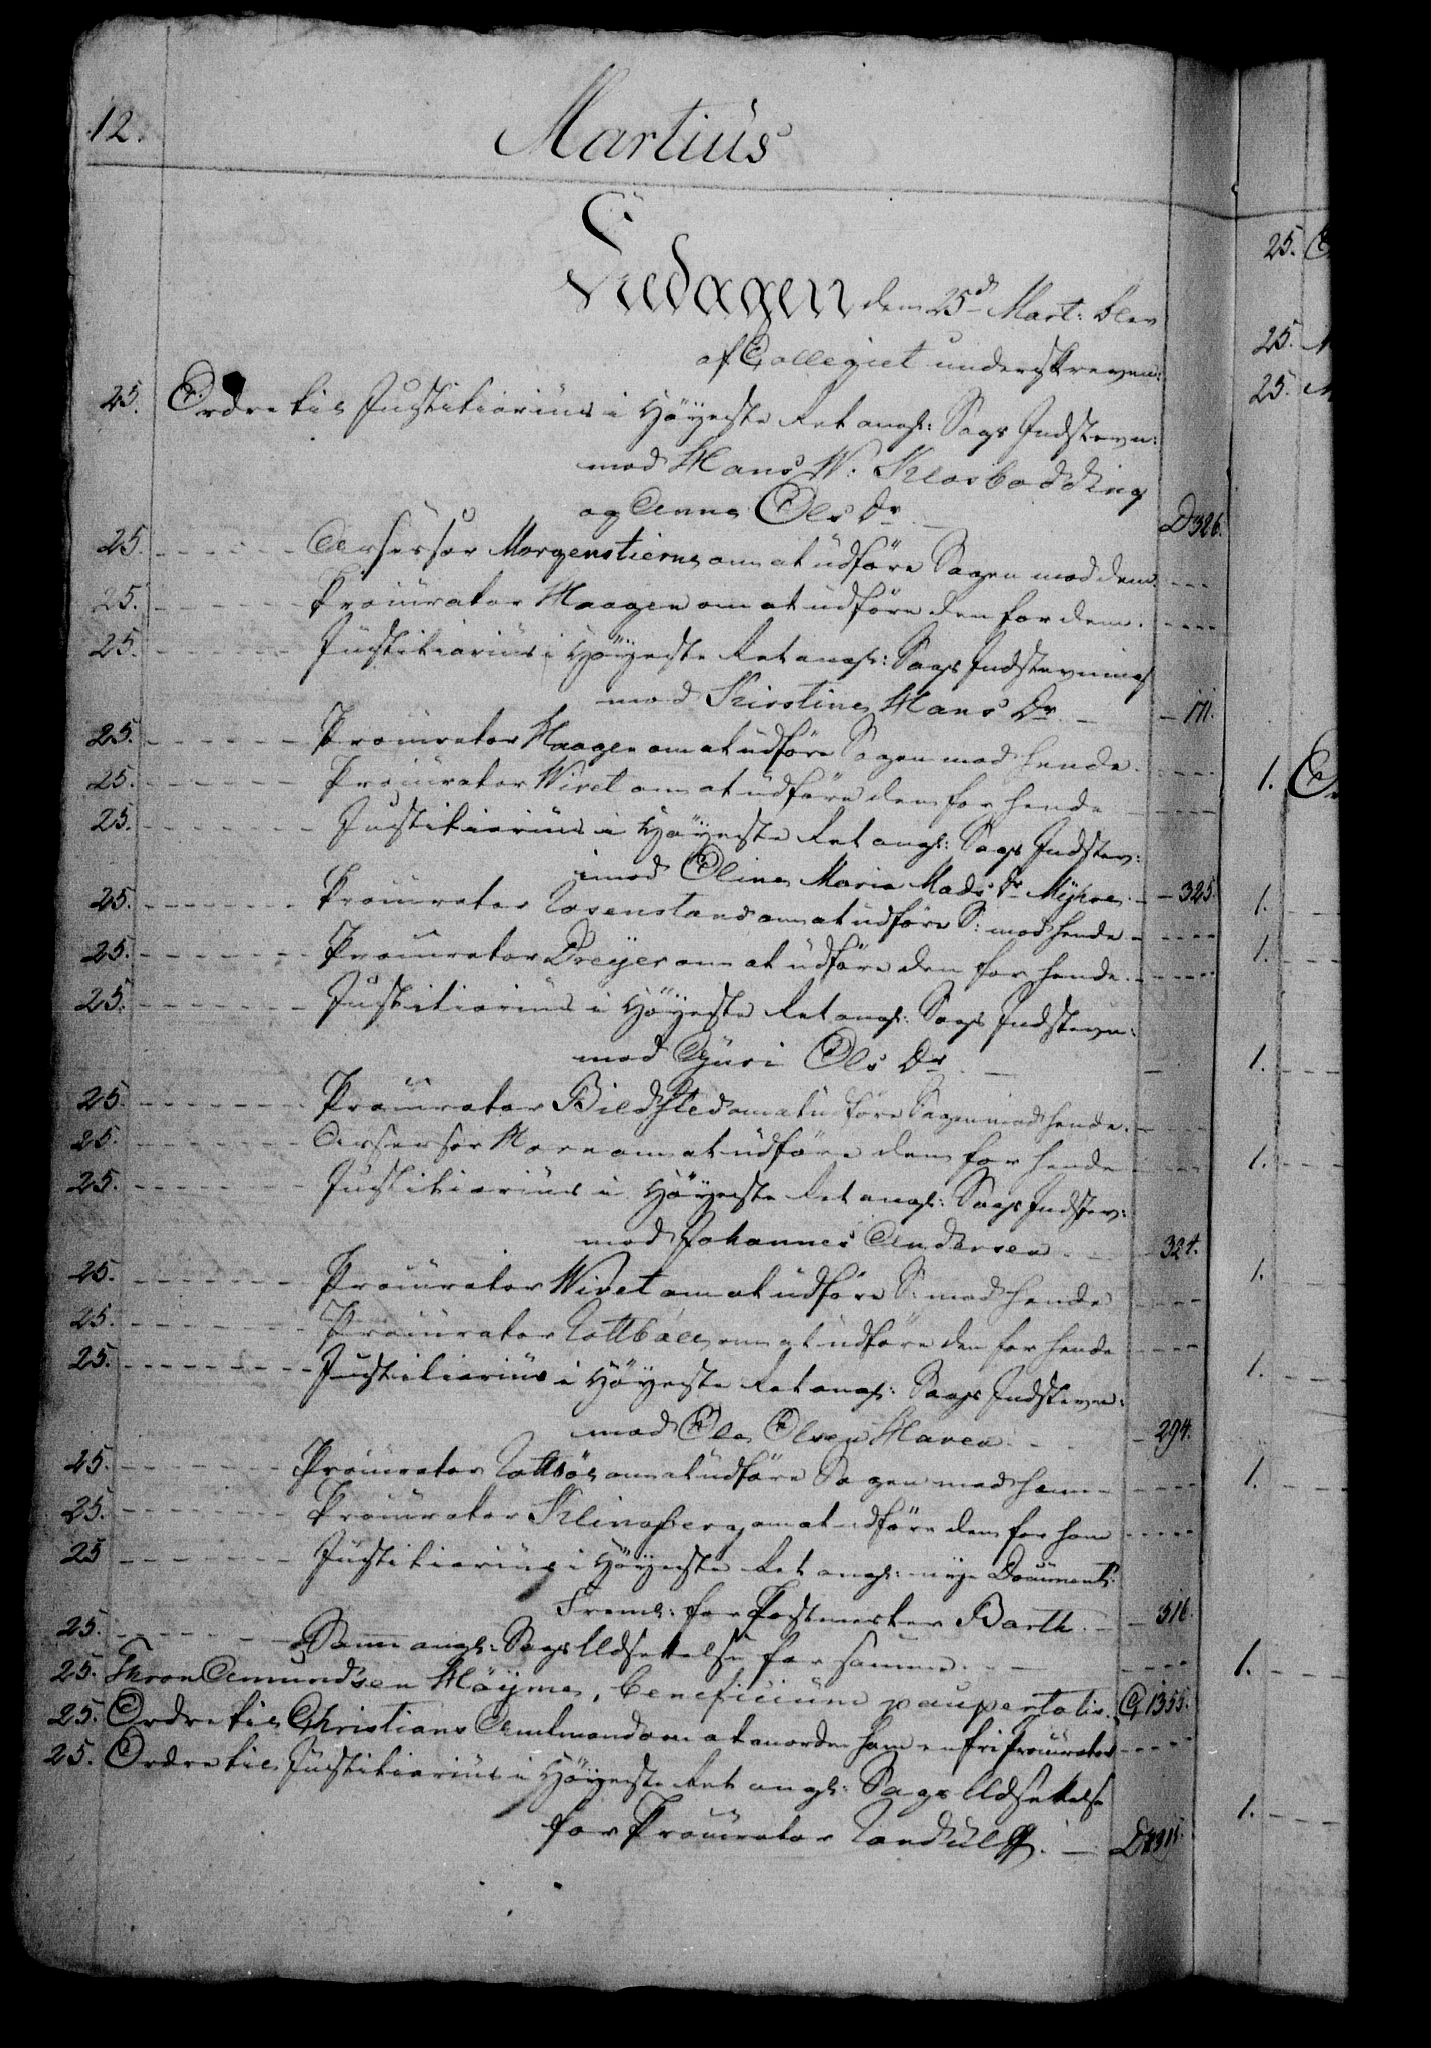 12.
Martius
Fredagen dem 25d Mart: blev
af Collegiet underskreven:
25. Ordre til Justitiarius i Höyeste Ret angl: Sags Indstevn:
mod Hans W. Klosbodding
og Anna Ols Dr. D326.
25. Assessor Morgenstierne om at udföre Sagen mod dem
25. Procurator Haagen om at udföre den for dem.
25. Justitiarius i Höyeste Ret angl: Sags Indstevning
mod Kirstine Hans Dr. 171.
25. Procurator Haagen om at udföre Sagen mod hende.
25. Procurator Wivet om at udföre dem for hende
25. Justitiarius i Höyeste Ret angl: Sags Indstev:
imod Oline Maria Mads Dr Myhre. 325.
25. Procurator Rosenstand om at udföre S: mod hende
25. Procurator Dreyer om at udföre den for hende.
25. Justitiarius i Höyeste Ret angl: Sags Indstevn:
mod Gjuri Ols Dr.
25. Procurator Bildsted om at udföre Sagen mod hende.
25. Assessor Horn om at udföre dem for hende
25. Justitiarius i Höyeste Ret angl: Sags Indstev:
mod Johannes Andersen. 324.
25. Procurator Wivet om at udföre S: mod hende
25. Procurator Rottböll om at udföre den for hende
25. Justitiarius i Höyeste Ret angl: Sags Indstevn:
mod Ole Olsen Haren. 294.
25. Procurator Rottböl om at udföre Sagen mod ham
25. Procurator Klingberg om at udföre dem for ham
25 Justitiarius i Höyeste Ret angl: nye Documents:
Freml: for Postmester Barth. 316.
25. Samme angl: Sags Udsettelse for samme.
25. Thron Amundsen Höyme, beneficium paupertatis. G1355.
25. Ordre til Christians Amtmand om at anordne ham en fri Procurator
25. Ordre til Justitiarius i Höyeste Ret angl: Sags Udsettelse
for Procurator Randulff. D315.
25.
25.
25.
1.
1.
1.
1.
1.
1.
1.
1.
1.
1.